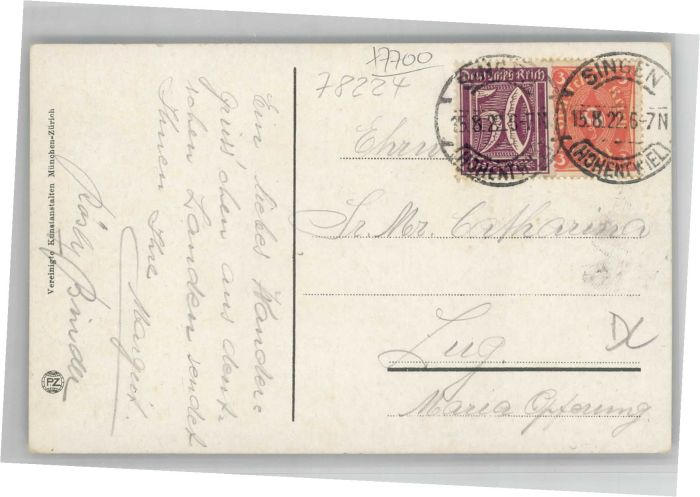 Ein liebes Wander-
grüss'chen aus deut-
schen Landen sendet
Ihnen Ihre Margrit.
Rösly Binder
Vereinigte Kunstanstalten München-Zürich
PZ
17700
78224
Deutsches Reich
SINGEN
15.8.22.6-7N
(HOHENTWIEL)
SINGEN
15.8.22.6-7N
(HOHENTWIEL)
Ehrw
Sr. Mr. Catharina
Zug.
Maria Opferung